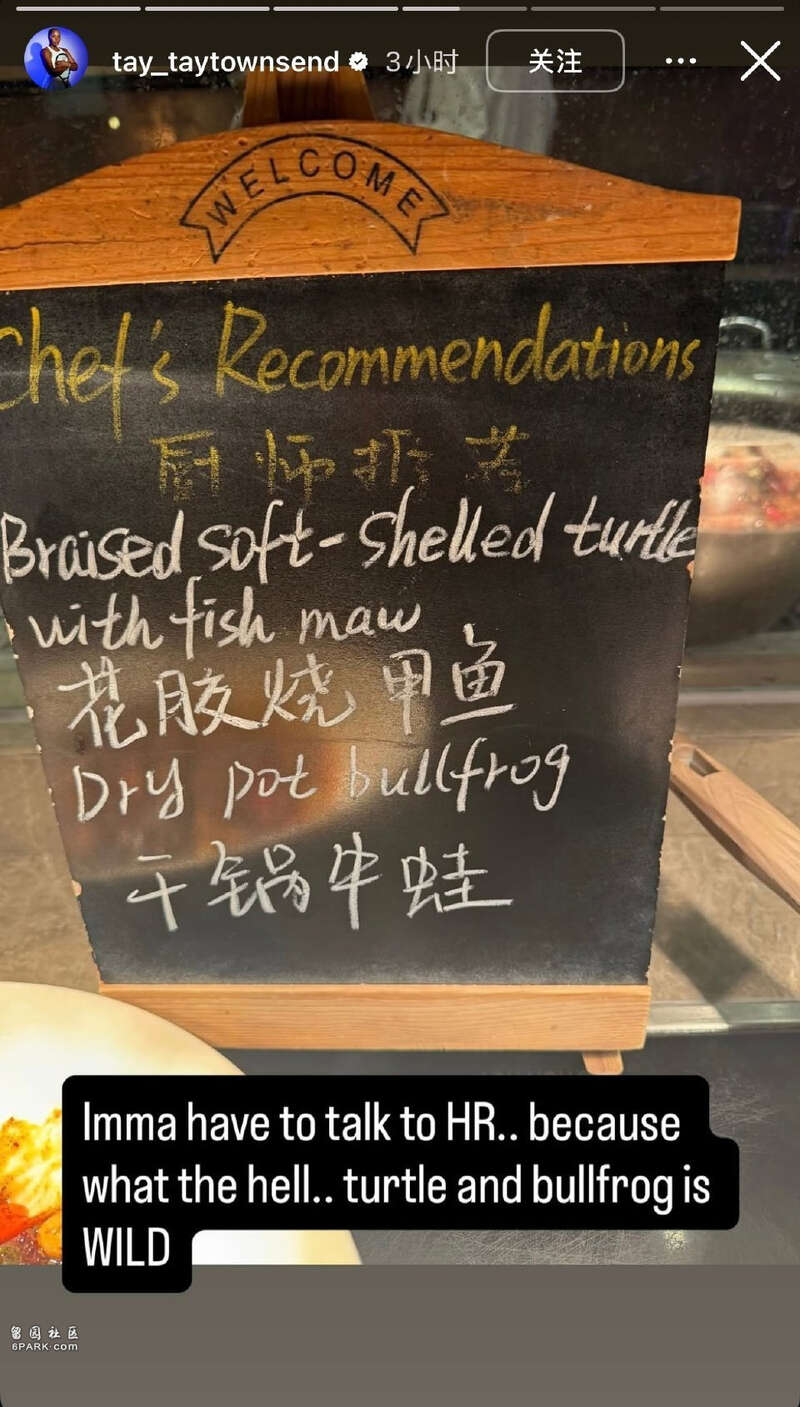 tay_taytownsend 3小时 关注
WELCOME
Chef's Recommendations
厨师推荐
Braised soft-shelled turtle
with fish maw
花胶烧甲鱼
Dry pot bullfrog
干锅牛蛙
Imma have to talk to HR.. because
what the hell.. turtle and bullfrog is
WILD
留园社区
6PARK.com